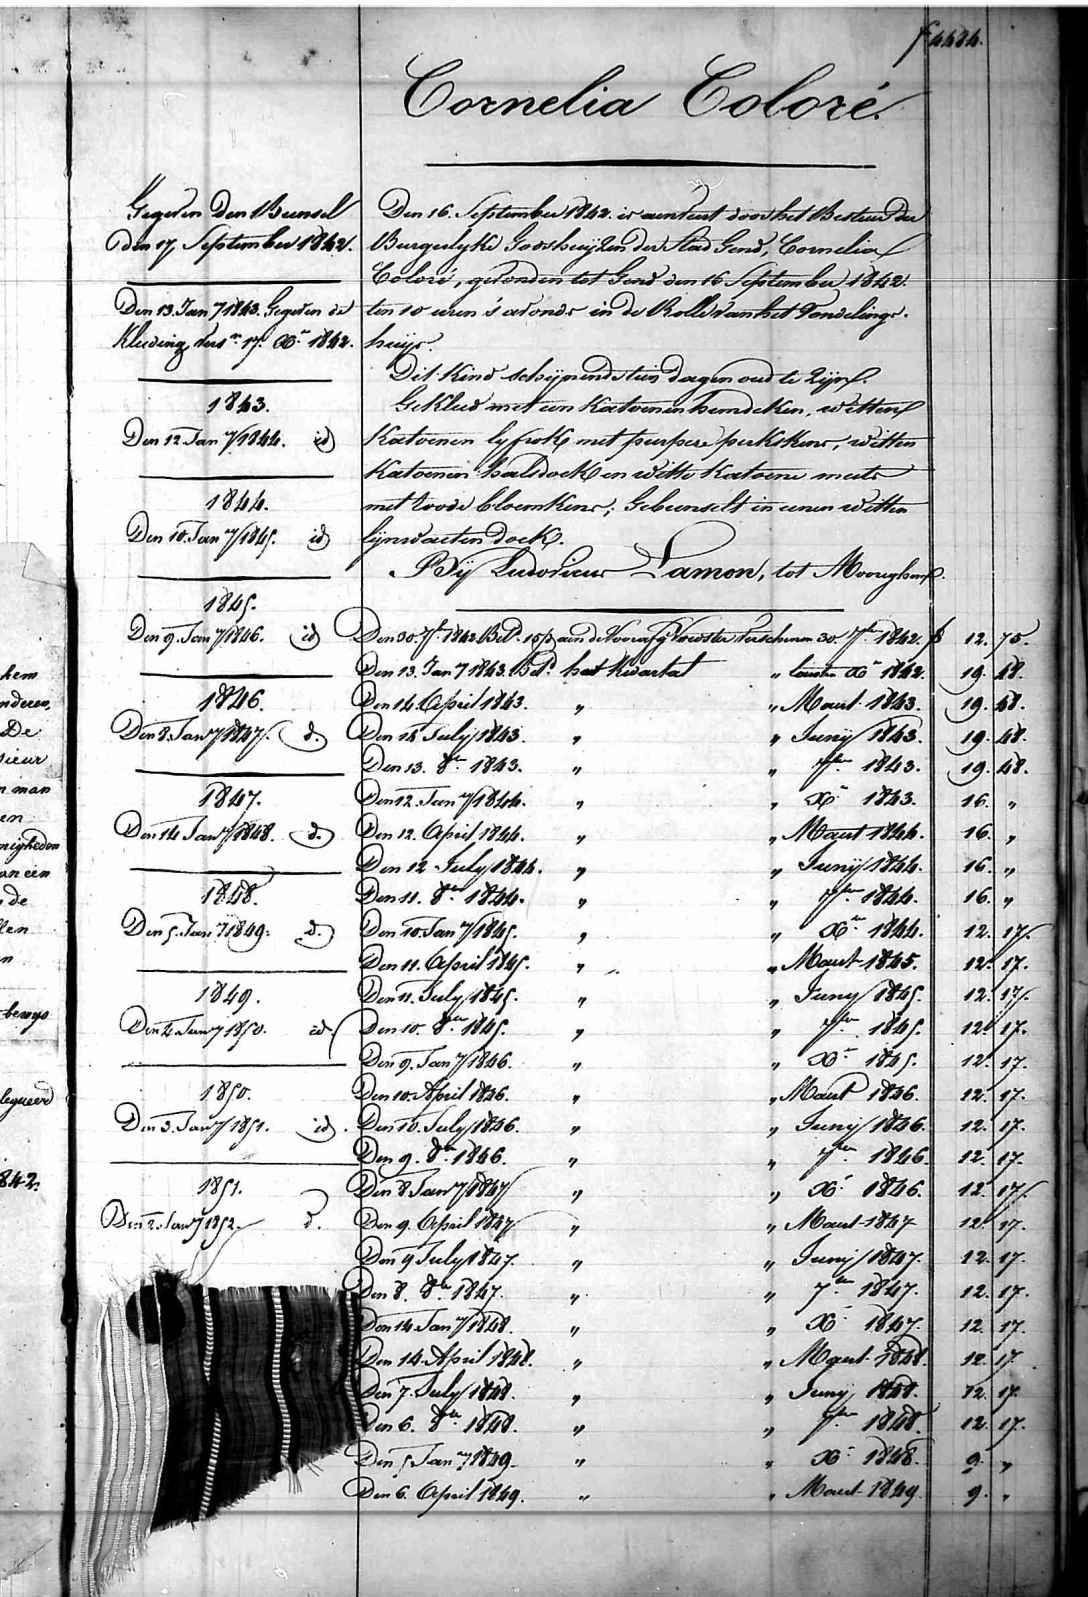 f 4484.
Cornelia Coloré.
Gegeven den Bunsel
den 17. September 1842.
Den 13. Jan^y 1843. Gegeven de
Kleeding vers^n 17. X^r 1842.
1843.
Den 12 Jan^y 1844. id
1844.
Den 10. Jan^y 1845. id
1845.
Den 9. Jan^y 1846. id
1846.
Den 8. Jan^y 1847. d.
1847.
Den 14 Jan^y 1848. d.
1848.
Den 5. Jan^y 1849. d.
1849.
Den 4. Jan^y 1850. id
1850.
Den 3. Jan^y 1851. id.
1851.
Den 2. Jan^y 1852. d.
Den 16. September 1842. is aenveert door het Bestuer der
Burgerlyke Godshuyzen der Stad Gend, Cornelia
Coloré, gevonden tot Gend den 16 September 1842.
ten 10 uren s'avonds in de Rolle van het Vondelings-
huys.
Dit Kind schynende tien dagen oud te zyn.
Gekleed met een Katoenen hemdeken, witten
Katoenen lyfrok met purpere perkskens, witten
Katoenen halsdoek en witte Katoene muts
met roode bloemkens; Gebunselt in eenen witten
lynwaeten doek.
By Ludovicus Lamon, tot
Den 30. 7^r 1842. Bet^d aen de Verschenen 30. 7^r 1842. f 12. 75.
Den 13. Jan^y 1843. Bet^d het Kwartael " X^r 1842. 19. 48.
Den 14. April 1843. " " Maert 1843. 19. 48.
Den 14 July 1843. " " Juny 1843. 19. 48.
Den 13. 8^er 1843. " " 7^er 1843. 19. 48.
Den 12. Jan^y 1844. " " X^r 1843. 16. "
Den 12. April 1844. " " Maert 1844. 16. "
Den 12 July 1844. " " Juny 1844. 16. "
Den 11. 8^er 1844. " " 7^er 1844. 16. "
Den 10. Jan^y 1845. " " X^r 1844. 12. 17.
Den 11. April 1845. " " Maert 1845. 12. 17.
Den 11. July 1845. " " Juny 1845. 12. 17.
Den 10. 8^er 1845. " " 7^er 1845. 12. 17.
Den 9. Jan^y 1846. " " X^r 1845. 12. 17.
Den 10. April 1846. " " Maert 1846. 12. 17.
Den 10. July 1846. " " Juny 1846. 12. 17.
Den 9. 8^er 1846. " " 7^er 1846. 12. 17.
Den 8 Jan^y 1847 " " X^r 1846. 12. 17.
Den 9. April 1847 " " Maert 1847 12. 17.
Den 9 July 1847. " " Juny 1847. 12. 17.
Den 8. 8^er 1847. " " 7^er 1847. 12. 17.
Den 14 Jan^y 1848. " " X^r 1847. 12. 17.
Den 14. April 1848. " " Maert 1848. 12. 17.
Den 7. July 1848. " " Juny 1848. 12. 17.
Den 6. 8^er 1848. " " 7^er 1848. 12. 17.
Den 5 Jan^y 1849. " " X^r 1848. 9. "
Den 6. April 1849. " " Maert 1849. 9. "